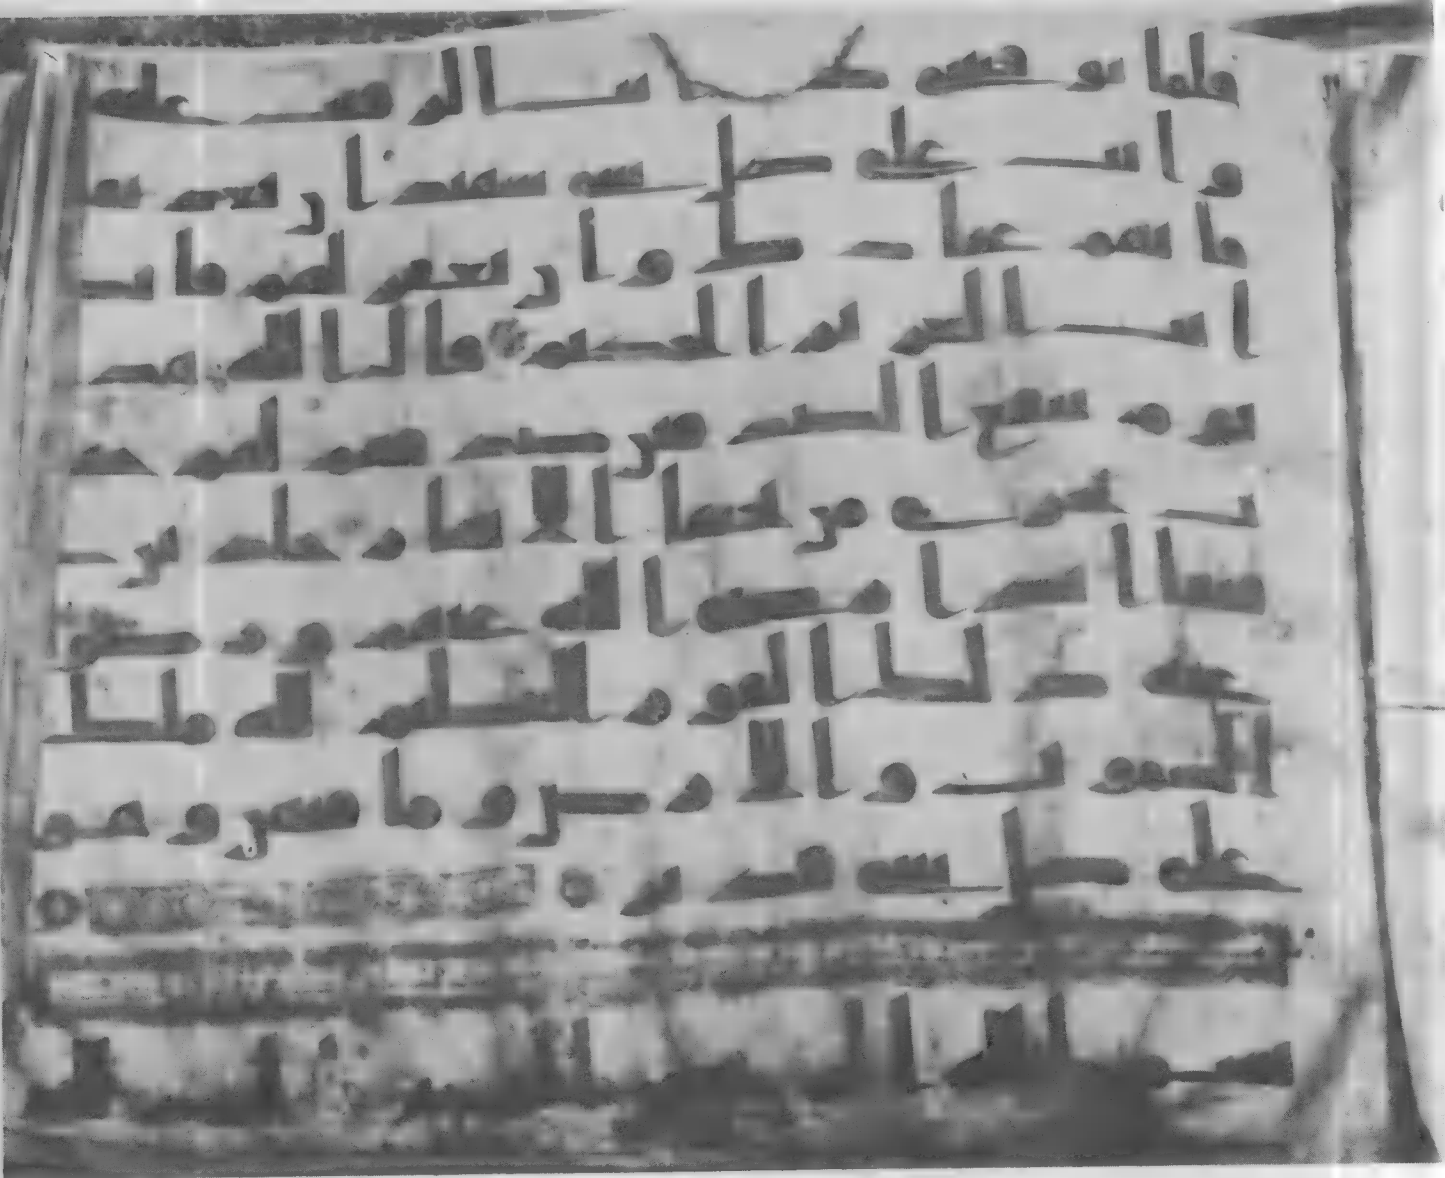 فلما توفيتني كنت انت الرقيب عليهم
وانت على كل شي شهيد ان تعذبهم
فانهم عبادك وان تغفر لهم فانك
انت العزيز الحكيم قال الله هذا
يوم ينفع الصدقين صدقهم لهم جنـ
ـت تجري من تحتها الانهر خلدين
فيها ابدا رضي الله عنهم ورضو
عنه ذلك الفوز العظيم لله ملك
السموت والارض وما فيهن وهو
على كل شي قدير
بسم الله